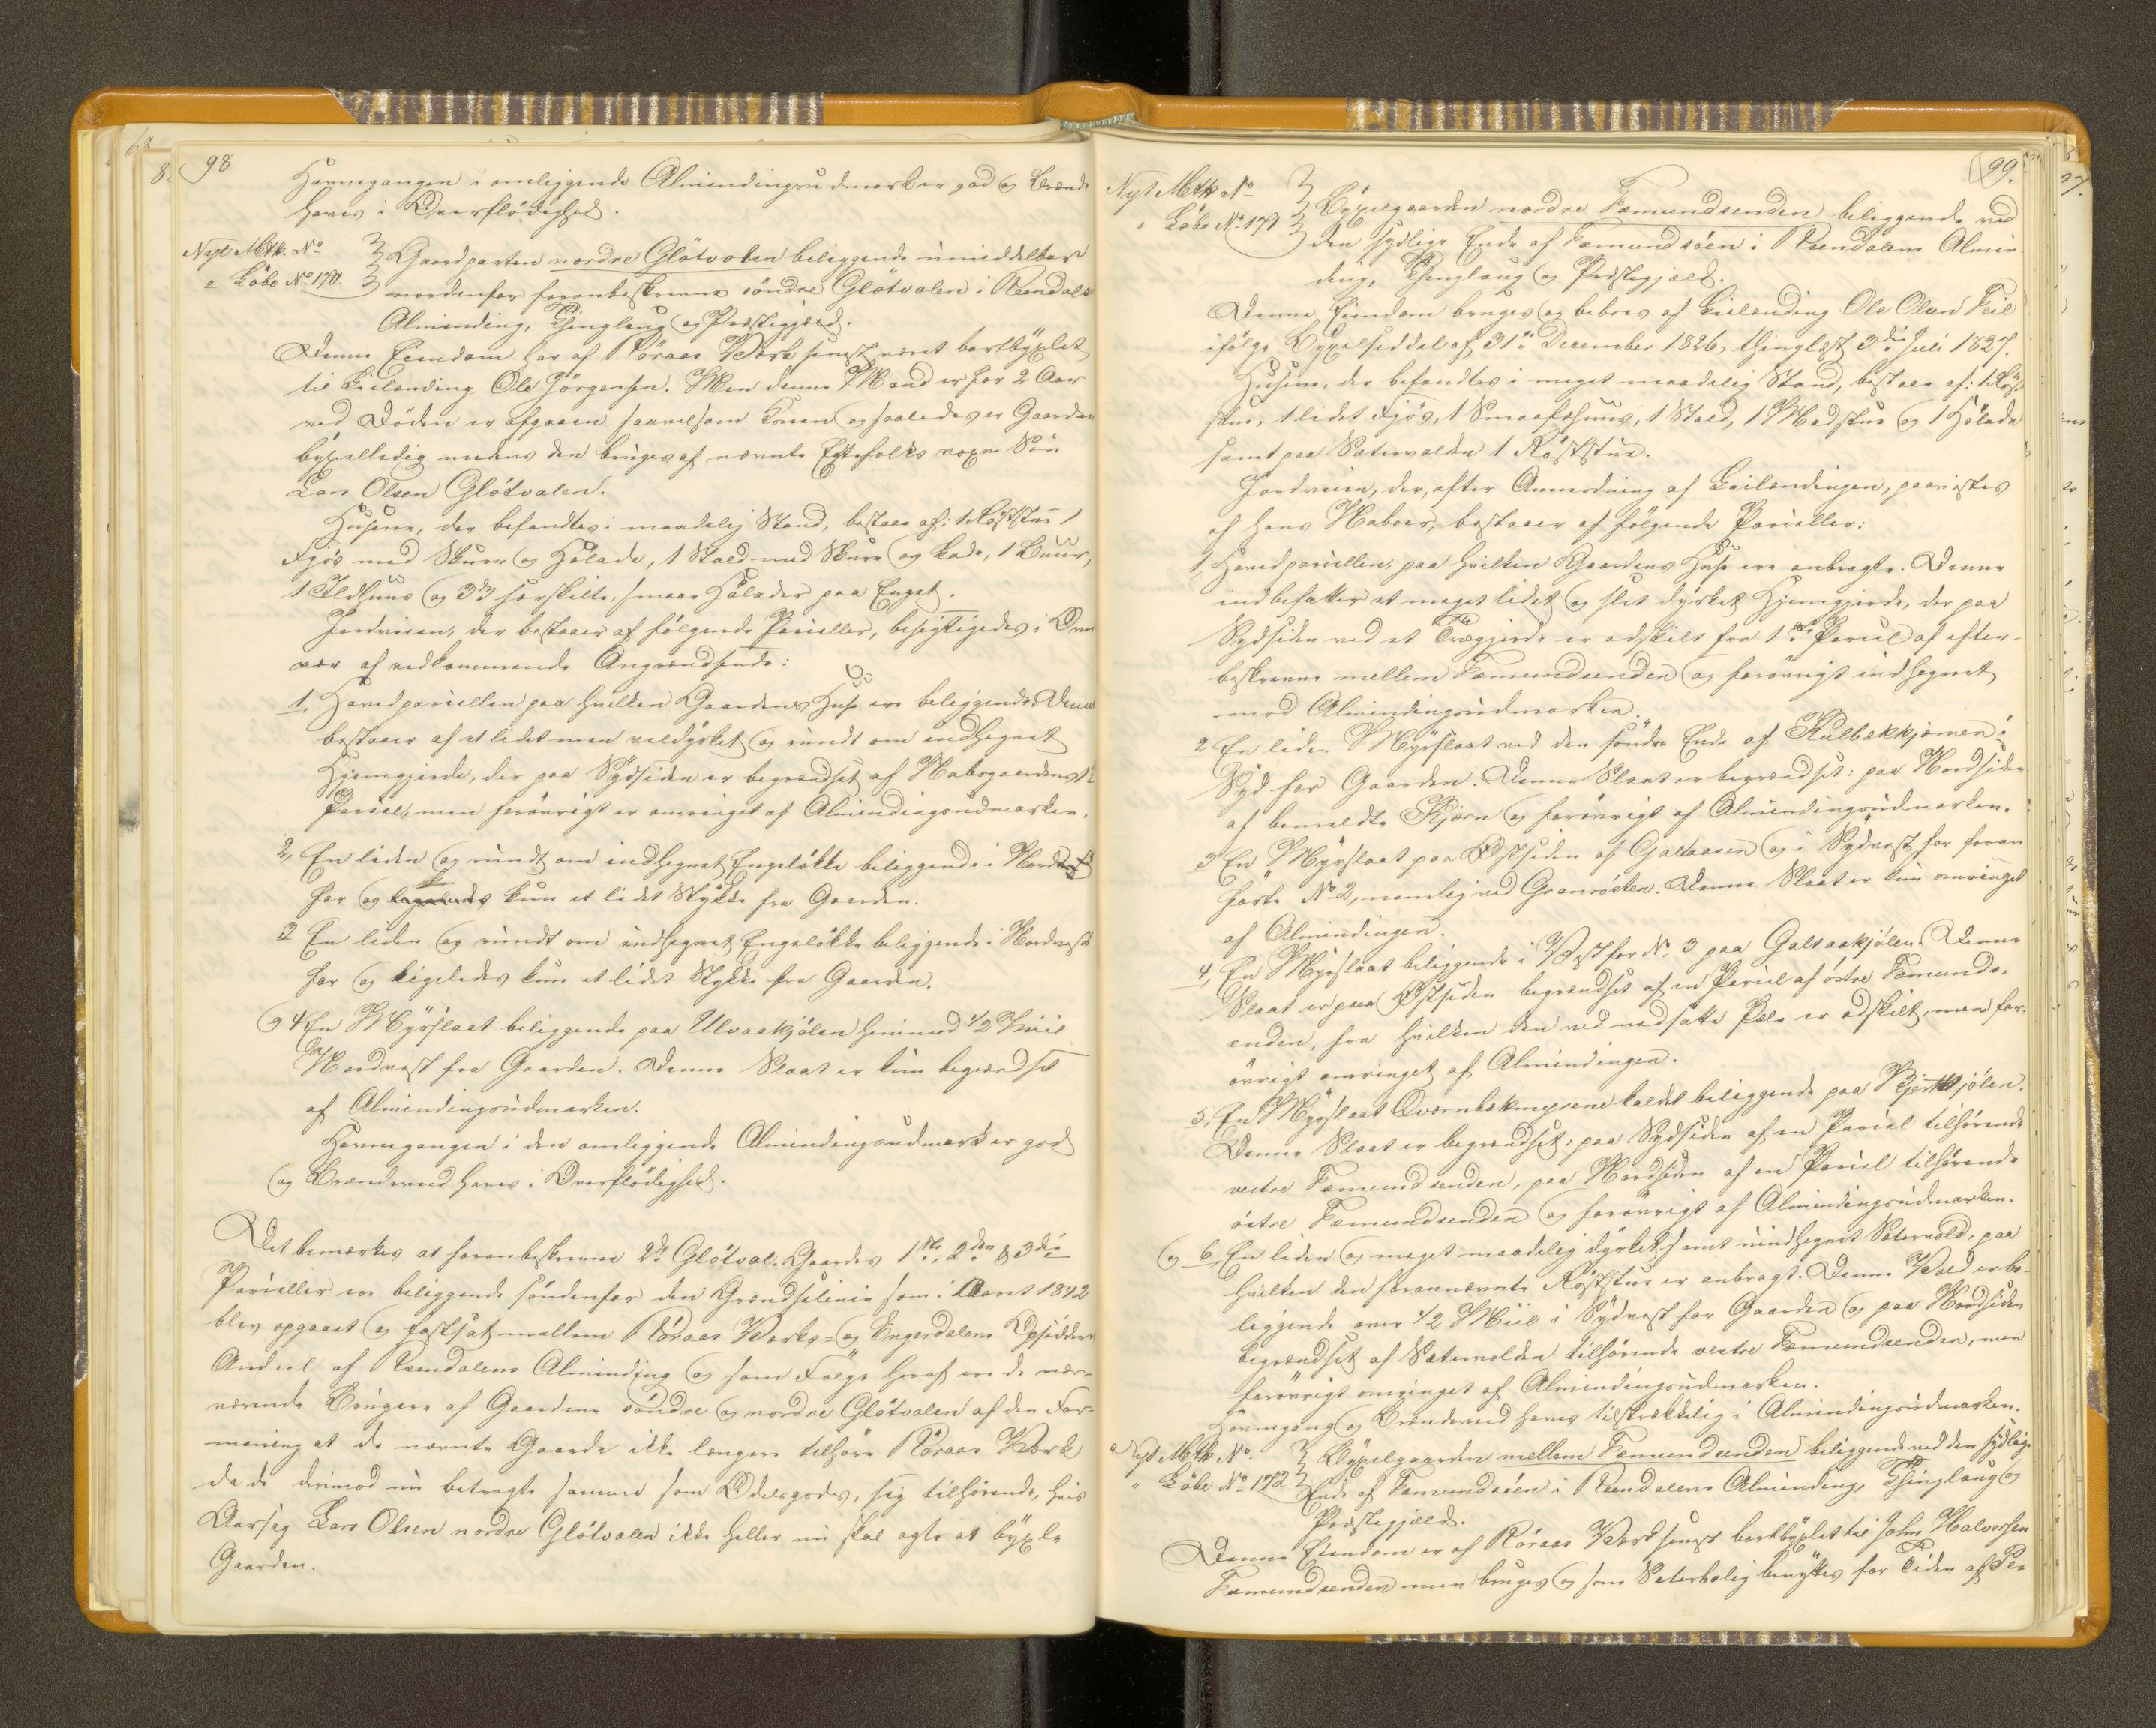 98
Havnegangen i omliggende Almindingsudmark er god og Brænde
haves i Overflödighed.
Nyt Mtk. No
" Löbe No 170.
Gaardparten nordre Glötvolen beliggende umiddelbar
nordenfor foranbeskrevne söndre Glötvolen i Rendals
Alminding, Thinglaug og Præstegjæld.
Denne Eiendom har af Röraas Værk senest været bortbÿxlet
til Leilænding Ole Jörgensen. Men denne Mand er for 2 Aar
ved Döden er afgaaen saavelsom Konen og saaledes er Gaarden
bÿxelledig medens den bruges af nævnte Ægtefolks voxne Sön
Lars Olsen Glötvolen.
Husene, der befandtes i maadelig Stand, bestaae af: 1 Röststue 1
Fjös med Skuur og Hölade, 1 Stald med Skuur og Lade, 1 Buur,
1 Ildhuus og 3de særskilte, smaae Hölader paa Enget.
Jordveien, der bestaaer af fölgende Parceller, besigtigedes i Over
vær af vedkommende Angrændsende:
1, Hovedparcellen paa hvilken Gaardens Huse ere beliggende. Denne
bestaaer af et lidet men veldÿrket og rundt om indhegnet
Hjemgjerde, der paa Sÿdsiden er begrændset af Nabogaardens 1te
Parcel, men forövrigt er omringet af Almindingsudmarken.
2, En liden og rundt om indhegnet Engelökke beliggende i Nordvest
for og kun et lidet Stÿkke fra Gaarden.
3 En liden og rundt om indhegnet Engelökke beliggende i Nordvest
for og ligeledes kun et lidet Stykke fra Gaarden.
og 4 En Mÿrslaat beliggende paa Ulvaakjölen henimod 1/2 Miil
i Nordvest fra Gaarden. Denne Slaat er kun begrændset
af Almindingsudmarken.
Havnegangen i den omliggende Almindingsudmark er god
og Brændeved haves i Overflödighed.
Det bemærkes at foranbeskrevne 2de Glötvol-Gaardes 1ste, 2den & 3die
Parceller ere beliggende söndenfor den Grændselinie som i Aaret 1842
blev opgaaet og fastsat mellem Röraas Værks- og Engerdalens Opsidderes
Andeel af Rendalens Alminding og som Fölge heraf ere de nær-
værende Brugere af Gaardene söndre og nordre Glötvolen af den For-
mening at de nævnte Gaarde ikke længere tilhöre Röraas Værk
da de derimod nu betragte samme som Odelsgods, sig tilhörende, hvis
Aarsag Lars Olsen nordre Glötvolen ikke heller nu skal agte at bÿxle
Gaarden.
99.
Nyt Mtk No
" Löbe No 171
Bÿxelgaarden nordre Fæmundsenden beliggende ved
den sydlige Ende af Fæmundsöen i Rendalens Almin-
ding, Thinglaug og Præstegjæld.
Denne Eiendom bruges og beboes af Leilænding Ole Olsen Feil
ifölge Bÿxelseddel af 31te December 1826, thinglæst 3die Juli 1827.
Husene, der befandtes i meget maadelig Stand, bestaae af: 1 Röst-
stue, 1 lidet Fjös, 1 Smaafæhuus, 1 Stald, 1 Madstue og 1 Hölade
samt paa Sætervolden 1 Röststue.
Jordveien, der, efter Anmodning af Leilændingen, paavistes
af hans Naboer, bestaaer af fölgende Parceller:
1, Hovedparcellen, paa hvilken Gaardens Huse ere anbragte. Denne
indbefatter et meget lidet og slet dÿrket Hjemgjerde, der paa
Sydsiden ved et Trægjerde er adskilt fra 1ste Parcel af efter-
beskrevne mellem Fæmundsenden og forövrigt indhegnet
mod Almindingsudmarken.
2 En liden Mÿrslaat ved den söndre Ende af Kulbækkjernen i
Syd for Gaarden. Denne Slaat er begrændset: paa Nordsiden
af bemeldte Kjern og forövrigt af Almindingsudmarken.
3 En Mÿrslaat paa Östsiden af Galtaasen og i Sÿdvest for foran
förte No 2, nemlig ved Granrösten. Denne Slaat er kun omringet
af Almindingen.
4, En Mÿrslaat beliggende i Vest for No 3 paa Galtaakjölen. Denne
Slaat er paa Östsiden begrændset af en Parcel af östre Fæmunds-
enden, fra hvilken den ved nedsatte Pæle er adskilt, men for-
övrigt omringet af Almindingen.
5, En Mÿrslaat Qværnbækmyrene kaldet beliggende paa Kjerkkjölen.
Denne Slaat er begrændset: paa Sydsiden af en Parcel tilhörende
vestre Fæmundsenden, paa Nordsiden af en Parcel tilhörende
östre Fæmundsenden og forövrigt af Almindingsudmarken.
og 6, En liden og meget maadelig dÿrket samt uindhegnet Sætervold, paa
hvilken den forannævnte Röststue er anbragt. Denne Vold er be-
liggende over 1/2 Miil i Sÿdvest for Gaarden og paa Nordsiden
begrændset af Sætervolden tilhörende vestre Fæmundsenden, men
forövrigt omringet af Almindingsudmarken.
Havnegang og Brændeved haves tilstrækkelig i Almindingsudmarken.
Nyt Mtk No.
" Löbe No 172
Bÿxelgaarden mellem Fæmundsenden beliggende ved den sydlige
Ende af Fæmundsöen i Rendalens Alminding, Thinglaug og
Præstegjæld.
Denne Eiendom er af Röraas Værk senest bortbÿxlet til John Halvorsen
Fæmundsenden men bruges og som Sæterbolig benÿttes for Tiden af Pe-